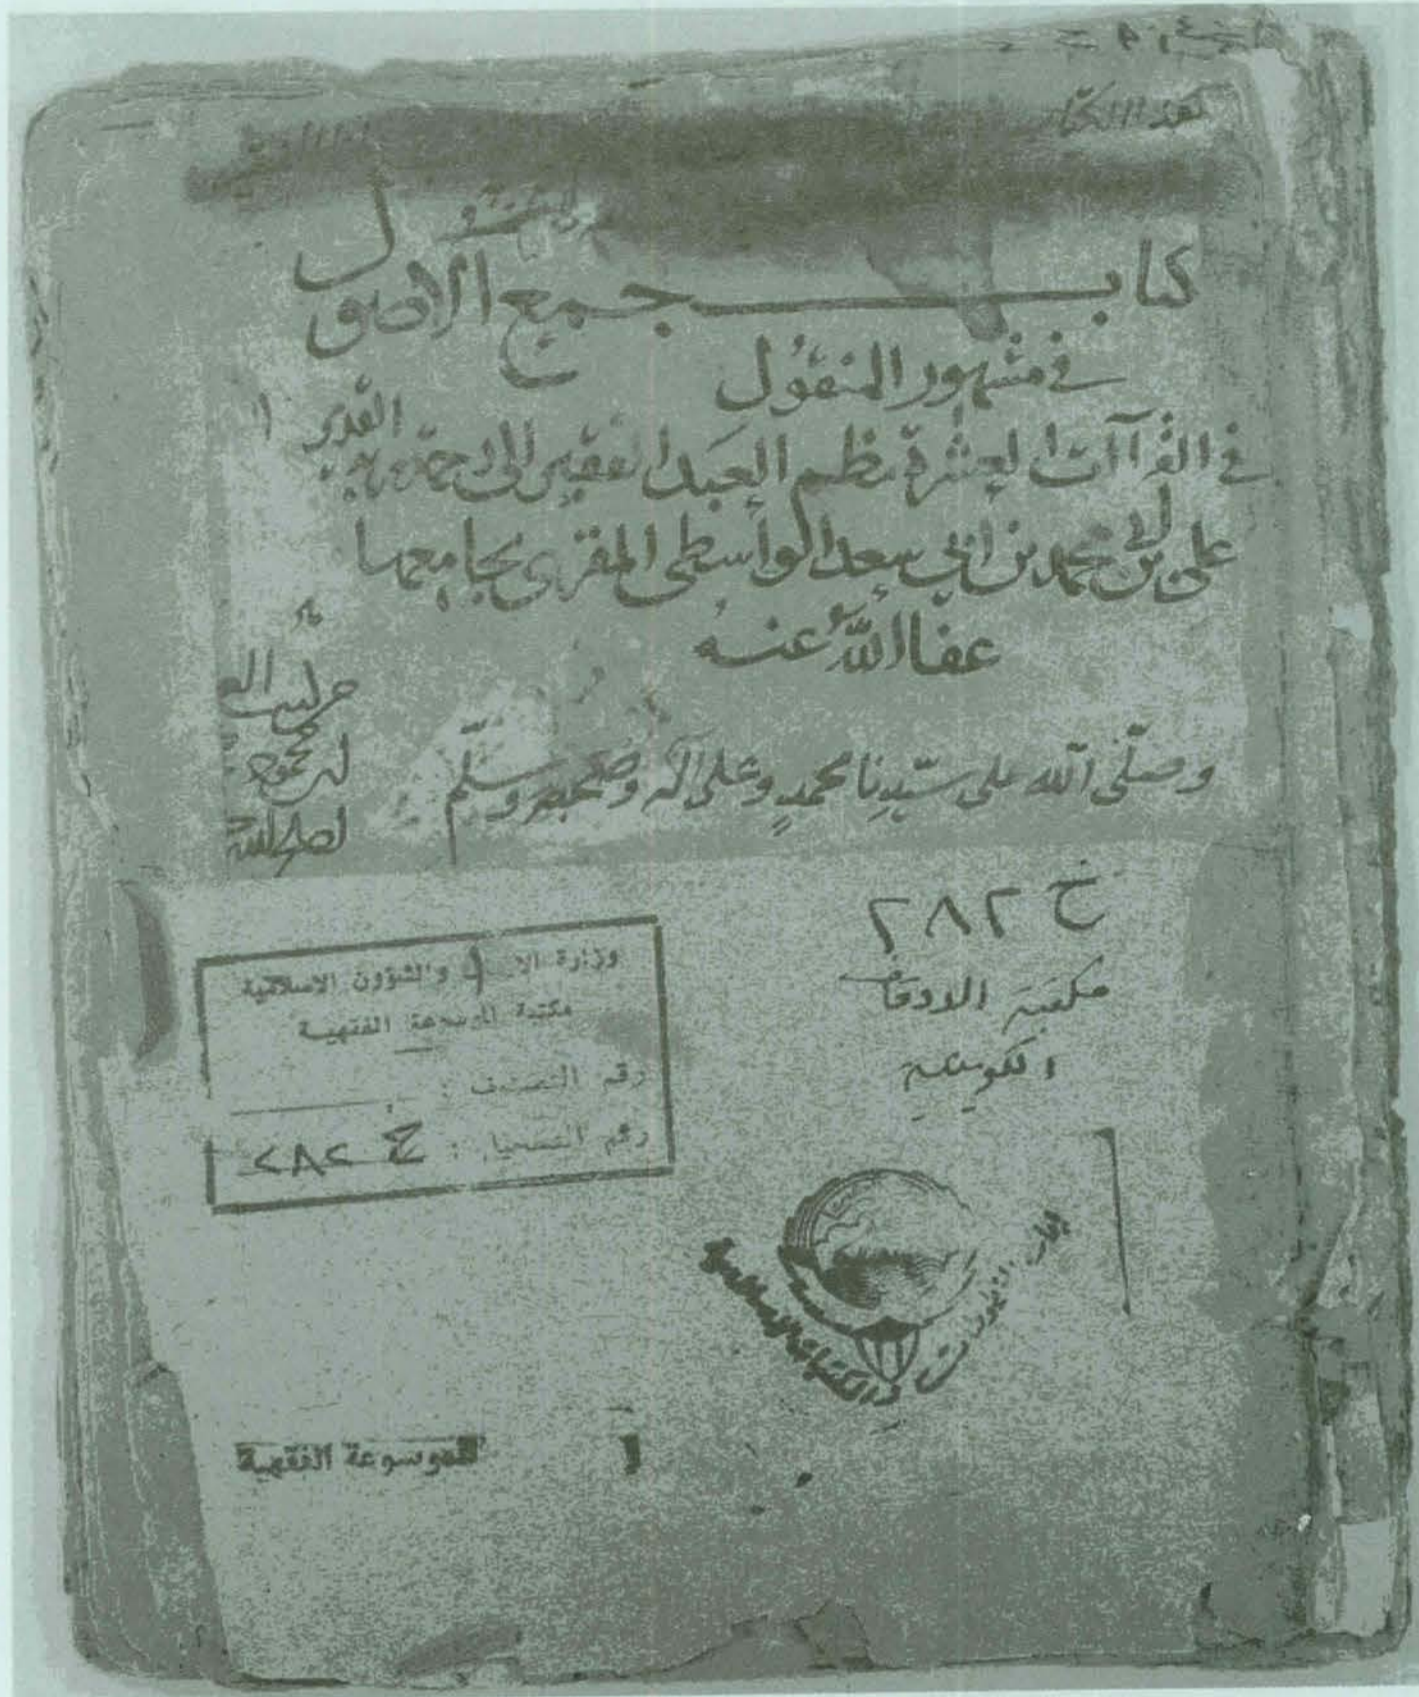 هذا الكتا
كتاب جمع الاصول
في مشهور المنقول
في القراآت العشرة نظم العبد الفقير الى رحمة ربه القدير
علي بن ابي محمد بن ابي سعد الواسطي المقرى بجامعها
عفا الله عنه
وصلى الله على سيدنا محمد وعلى آله وصحبه وسلم
خ ٢٨٢
مكتبة الاوقاف
الكويتية
وزارة الا والشؤون الاسلامية
مكتبة الموسوعة الفقهية
رقم التصنيف :
رقم التسجيل : خ ٢٨٢
والمكتبات الاسلامية
الموسوعة الفقهية